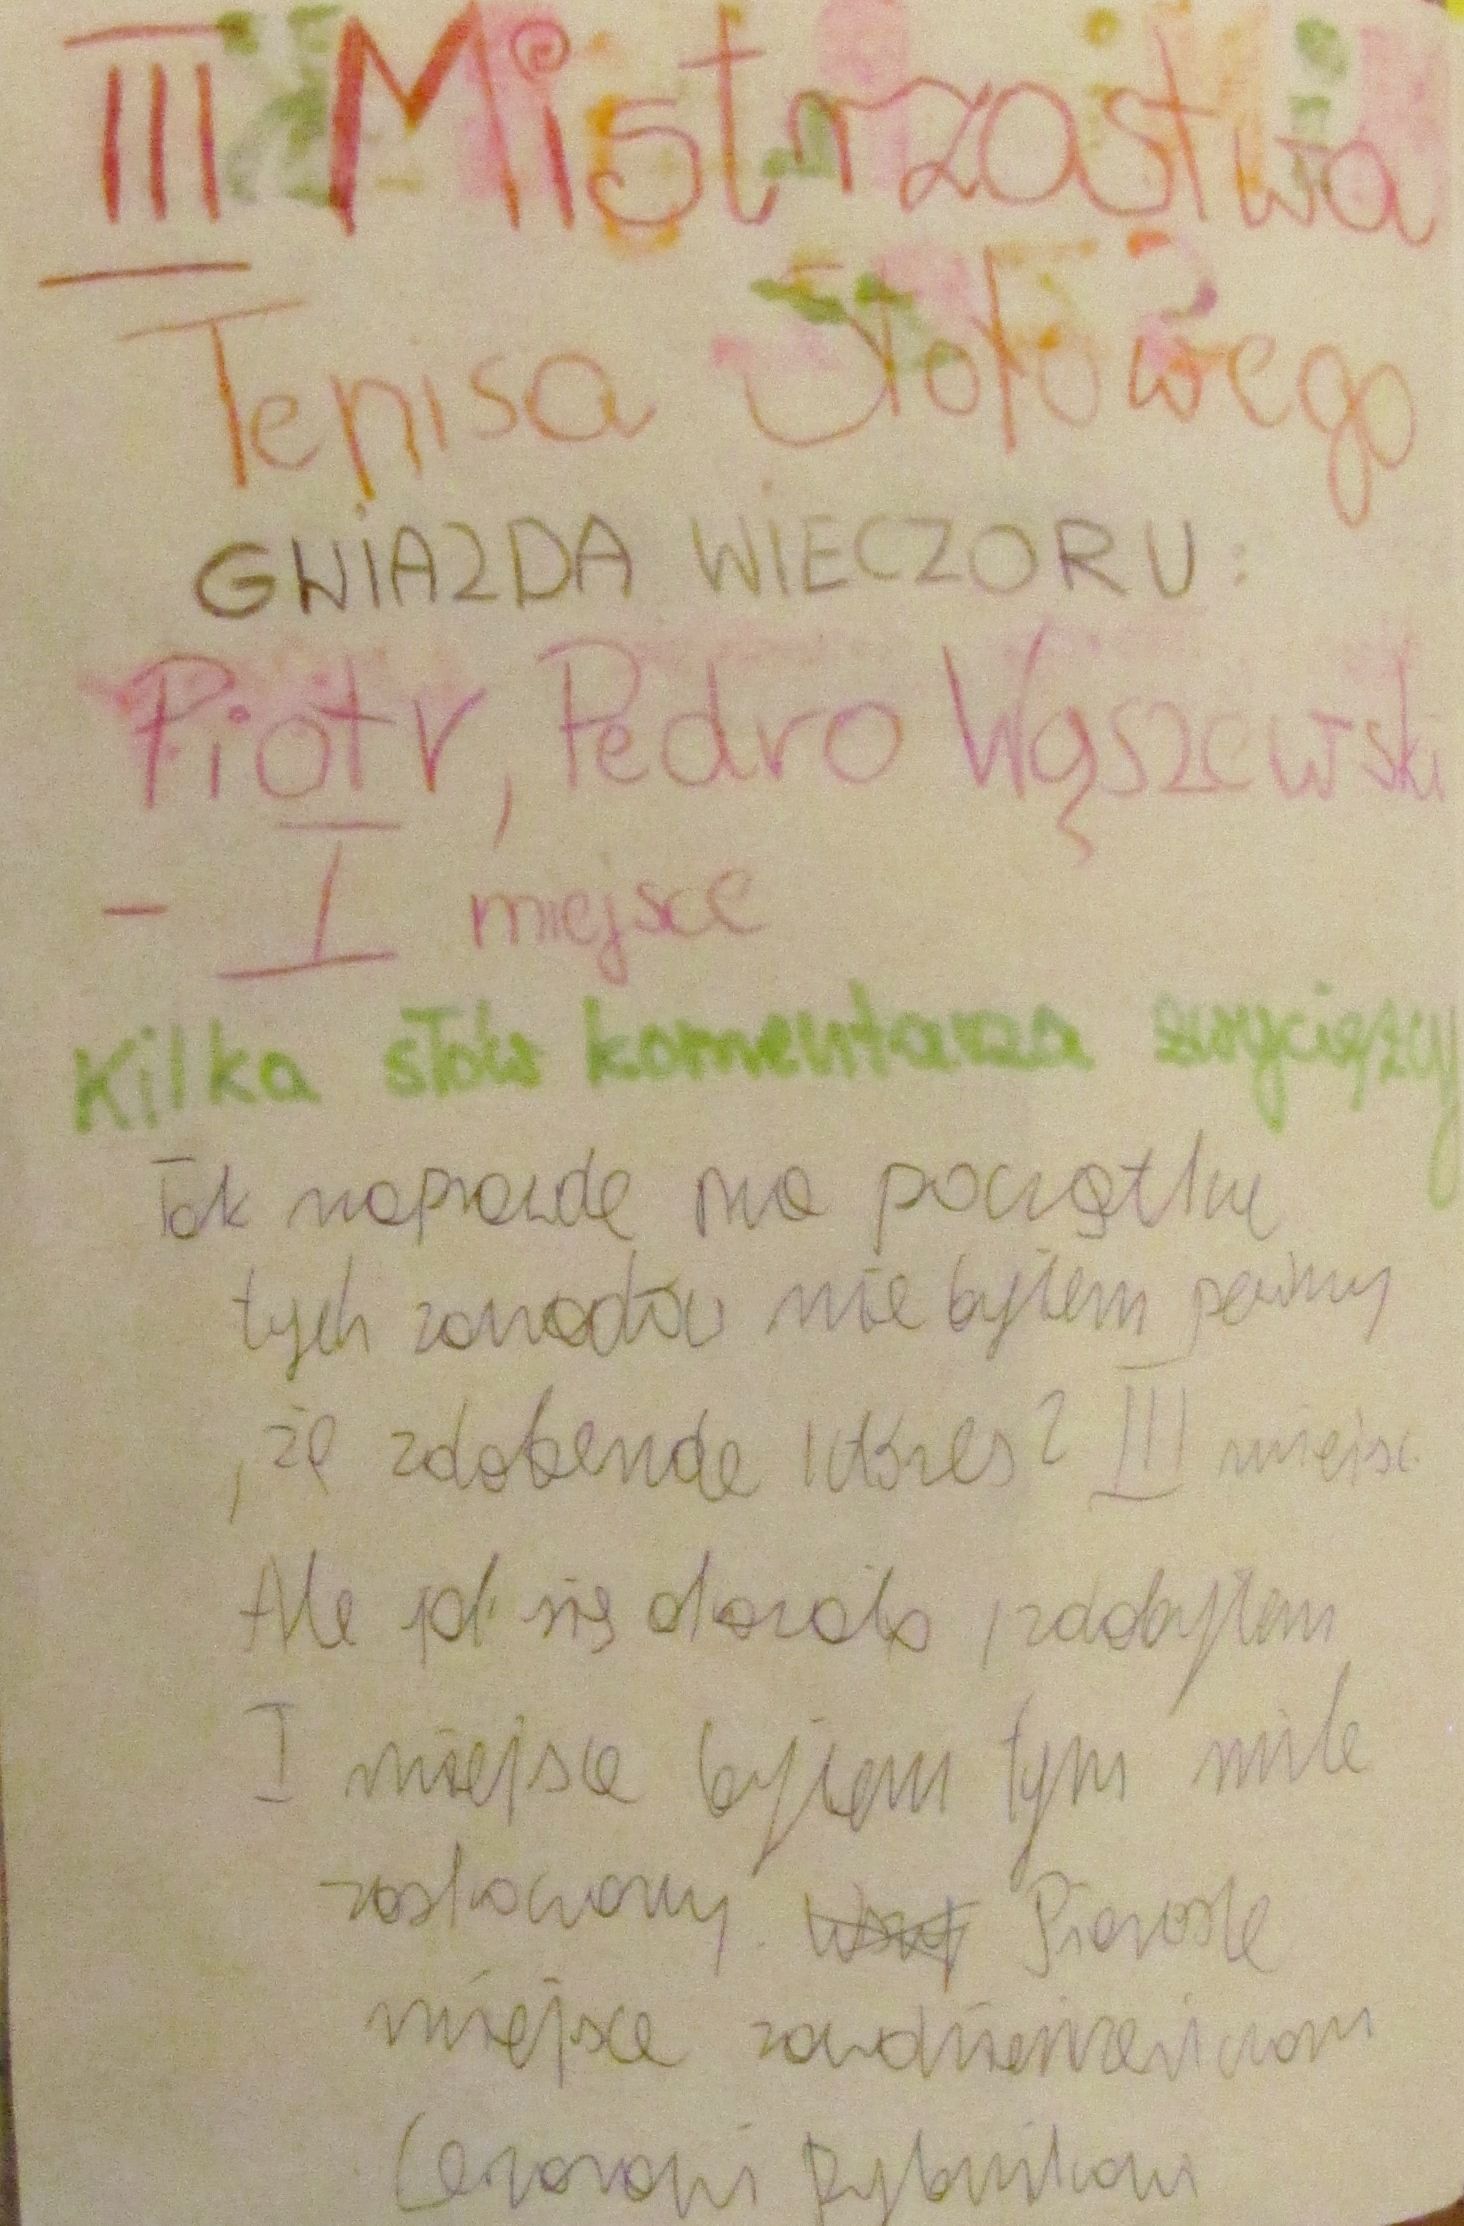 III Mistrzostwa
Tenisa Stołowego
GWiAZDA WiECZORU:
Piotr, Pedro Wąszewski
- I miejsce
Kilka słów komentarza zwycięzcy
Tak naprawdę na początku
tych zawodów nie byłem pewny
, że III miejsc
Ale jak się okazało, zdobyłem
I miejsce byłem tym mile
zaskoczony. Pierwsze
miejsce
Cezarowi Rybnikowi